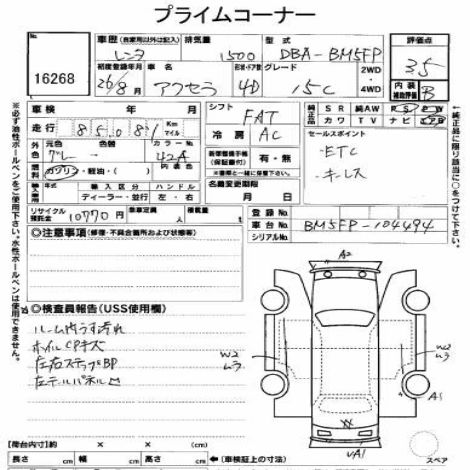 プライムコーナー
16268
車歴 (自家用以外は記入) 排気量 型式 評価点
レンタ 1500 DBA-BM5FP 3.5
初度登録年月 車名 形状・ドア数 グレード 2WD 内装
26/8 アクセラ 4D 15C 4WD 補助評価 B
車検 年 月 シフト 純正品 SR 純AW PS PW
走行 85,081 Km マイル FAT カワ TV ナビ エアB
外色 元色 色替 カラーNo. 冷房 セールスポイント
グレー 42A AC ・ETC
燃料 ガソリン・軽油・( ) 内装色 新車整備手帳(保証書付) 有・無 ・キーレス
輸入車 輸入区分 ハンドル ※書類と一緒に保管して下さい。
ディーラー・並行 左・右 名義変更期限
リサイクル預託金 10770円 乗車定員 人 積載量 t 月 日 登録No.
車台No. BM5FP-104494
シリアルNo.
◎注意事項 (修復・不具合箇所および状態等)
◎検査員報告 (USS使用欄)
ルーム内うす汚れ
ホイルCPキズ
左右ステップBP
左テールパネル凹
A2
W2 ム3
W2 ム3
A1
UA1
スペア
【荷台内寸】(約 × × )
長さ cm 幅 cm 高さ cm ←(車検証上の寸法)
※必ず油性ボールペンをご使用下さい。水性ボールペンは使用できません。
←純正品に限り該当に○をつけて下さい。